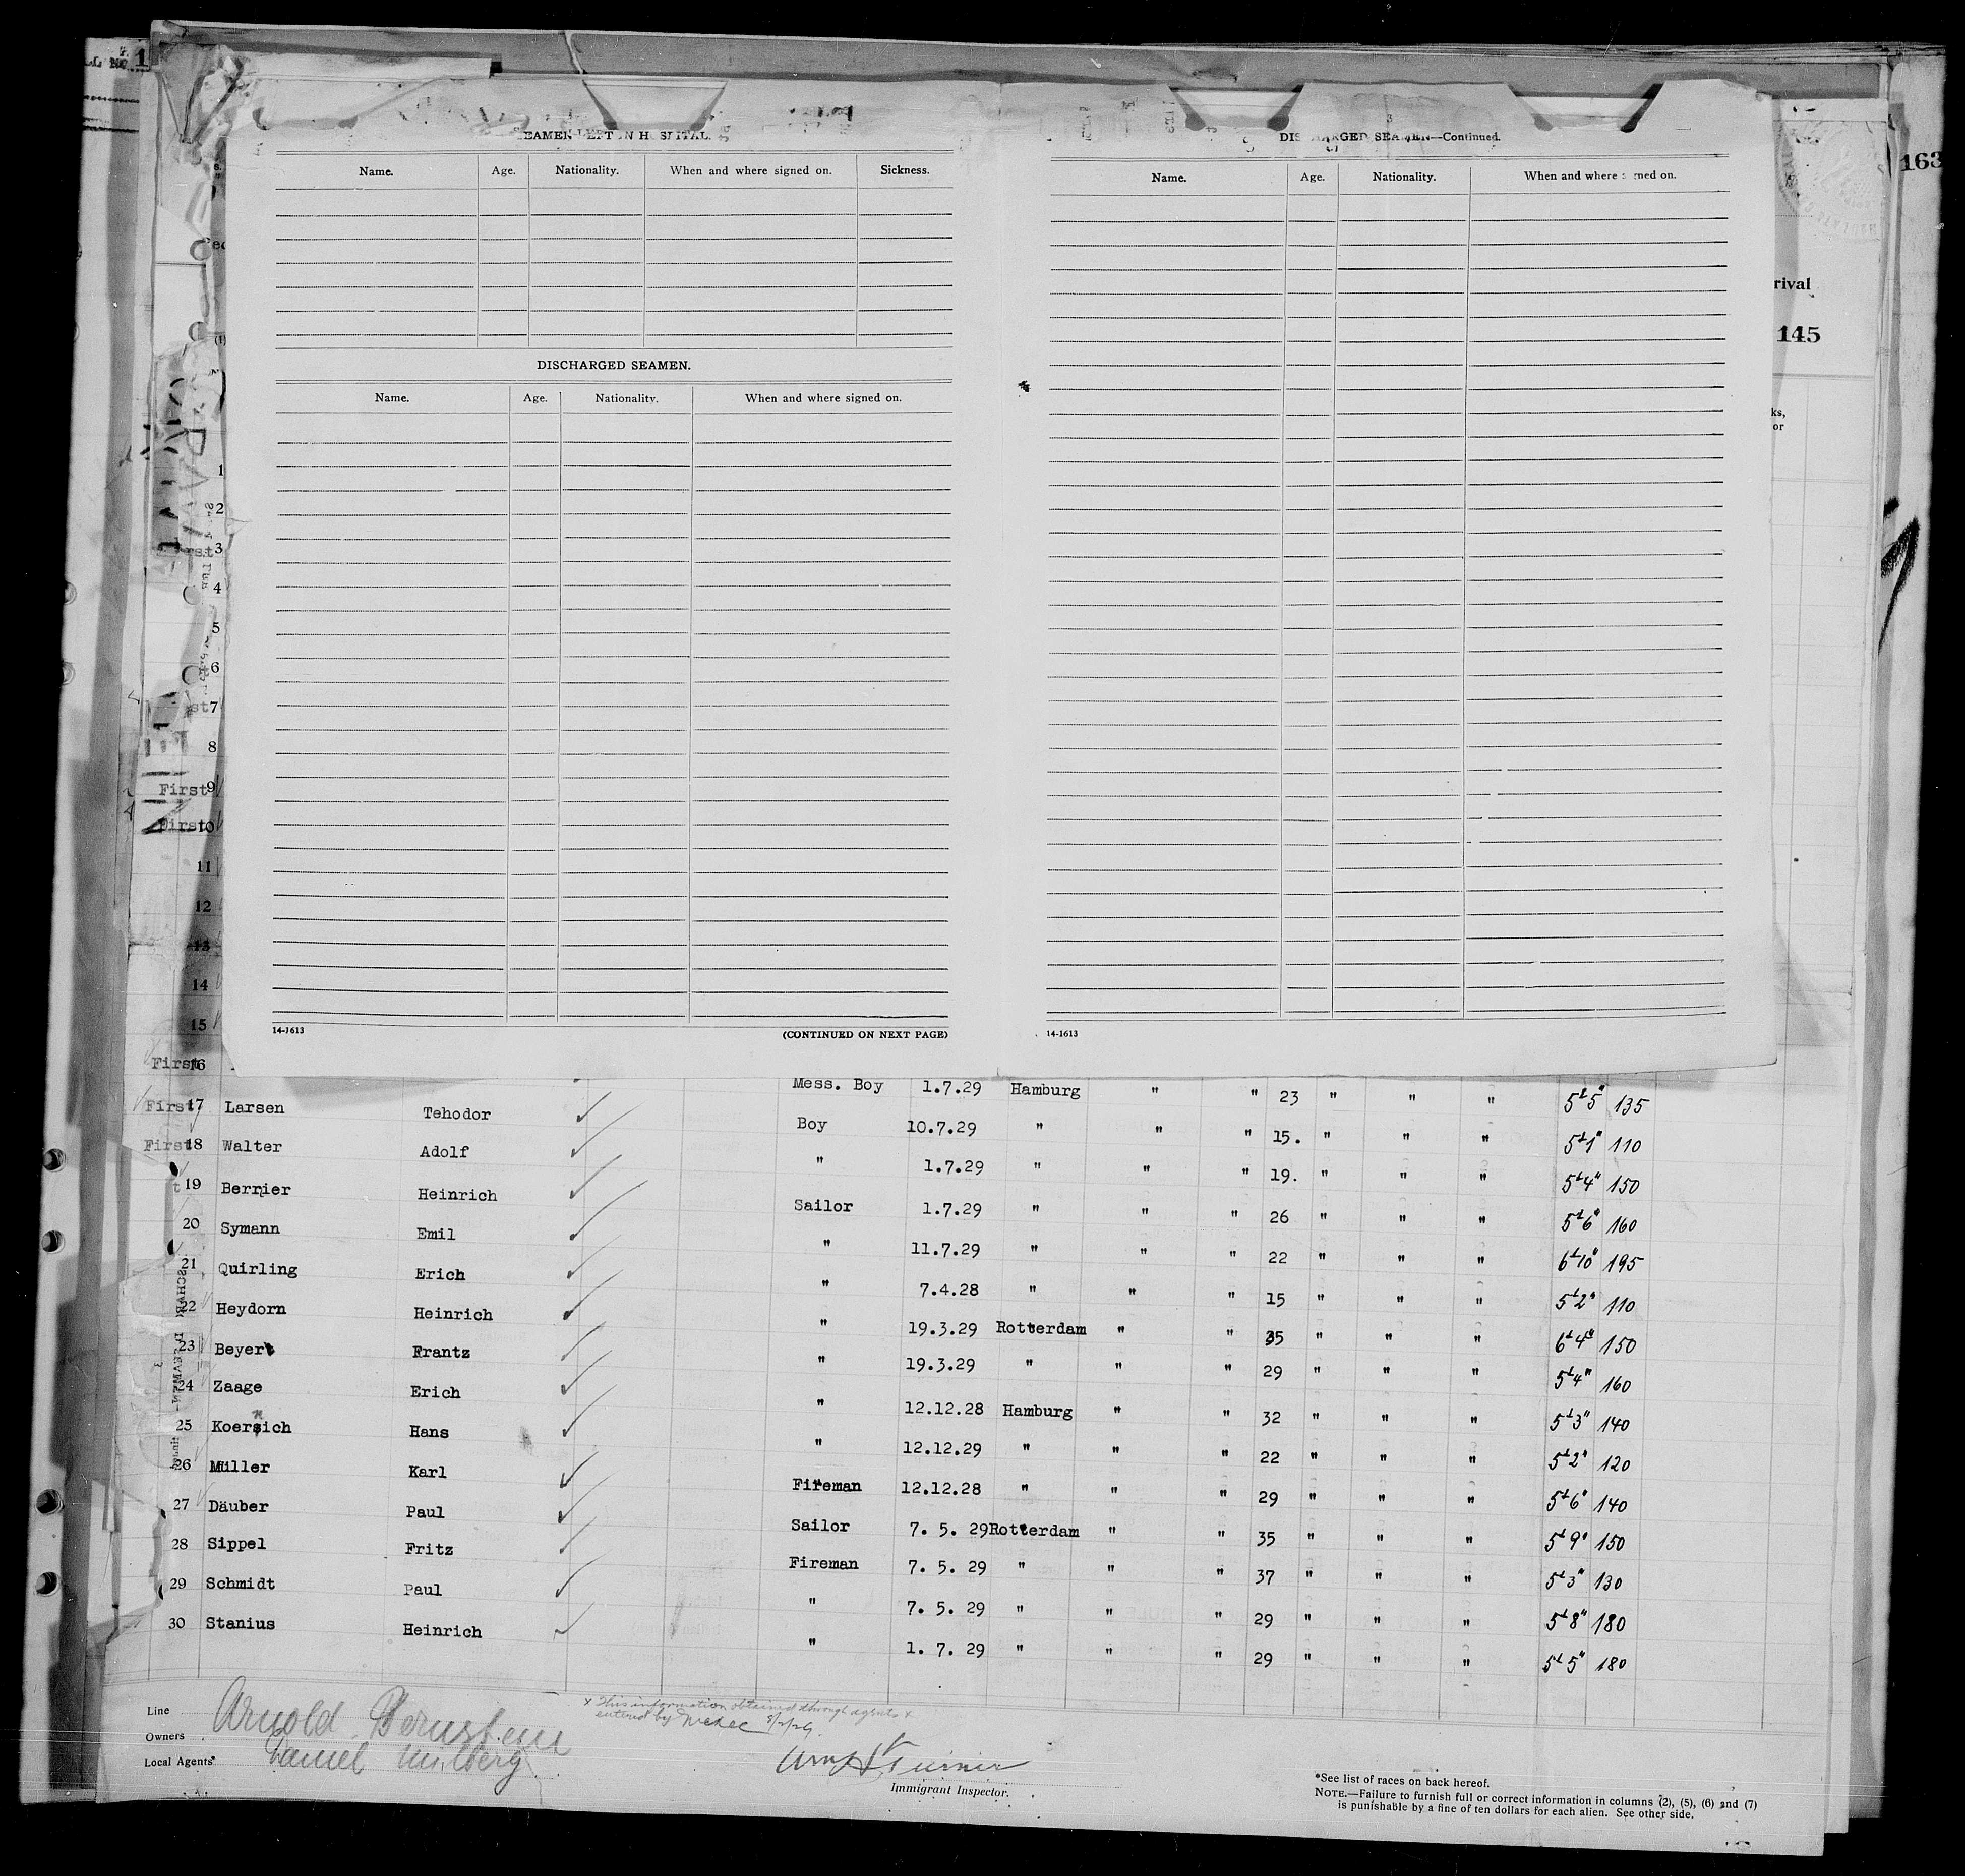 163
rival
145
ks,
or
SEAMEN LEFT IN HOSPITAL.
Name. Age. Nationality. When and where signed on. Sickness.
DISCHARGED SEAMEN.
Name. Age. Nationality. When and where signed on.
14-1613 (CONTINUED ON NEXT PAGE)
DISCHARGED SEAMEN—Continued.
Name. Age. Nationality. When and where signed on.
14-1613
1
2
3
4
5
6
7
8
First 9
First 10
11
12
13
14
15
First 16 Mess. Boy 1.7.29 Hamburg " " 23 " " " 5' 5" 135
First 17 Larsen Tehodor Boy 10.7.29 " " " 15. " " " 5' 1" 110
First 18 Walter Adolf " 1.7.29 " " " 19. " " " 5' 4" 150
19 Berrier Heinrich Sailor 1.7.29 " " " 26 " " " 5' 6" 160
20 Symann Emil " 11.7.29 " " " 22 " " " 6' 10" 195
21 Quirling Erich " 7.4.28 " " " 15 " " " 5' 2" 110
22 Heydorn Heinrich " 19.3.29 Rotterdam " " 35 " " " 6' 4" 150
23 Beyert Frantz " 19.3.29 " " " 29 " " " 5' 4" 160
24 Zaage Erich " 12.12.28 Hamburg " " 32 " " " 5' 3" 140
25 Koernich Hans " 12.12.29 " " " 22 " " " 5' 2" 120
26 Müller Karl Fireman 12.12.28 " " " 29 " " " 5' 6" 140
27 Däuber Paul Sailor 7. 5. 29 Rotterdam " " 35 " " " 5' 9" 150
28 Sippel Fritz Fireman 7. 5. 29 " " " 37 " " " 5' 3" 130
29 Schmidt Paul " 7. 5. 29 " " " 29 " " " 5' 8" 180
30 Stanius Heinrich " 1. 7. 29 " " " 29 " " " 5' 5" 180
Line
Owners Arnold Bernstein
Local Agents Daniel Milberg
x This information obtained through agents x
entered by
Immigrant Inspector.
*See list of races on back hereof.
NOTE.—Failure to furnish full or correct information in columns (2), (5), (6) and (7)
is punishable by a fine of ten dollars for each alien. See other side.